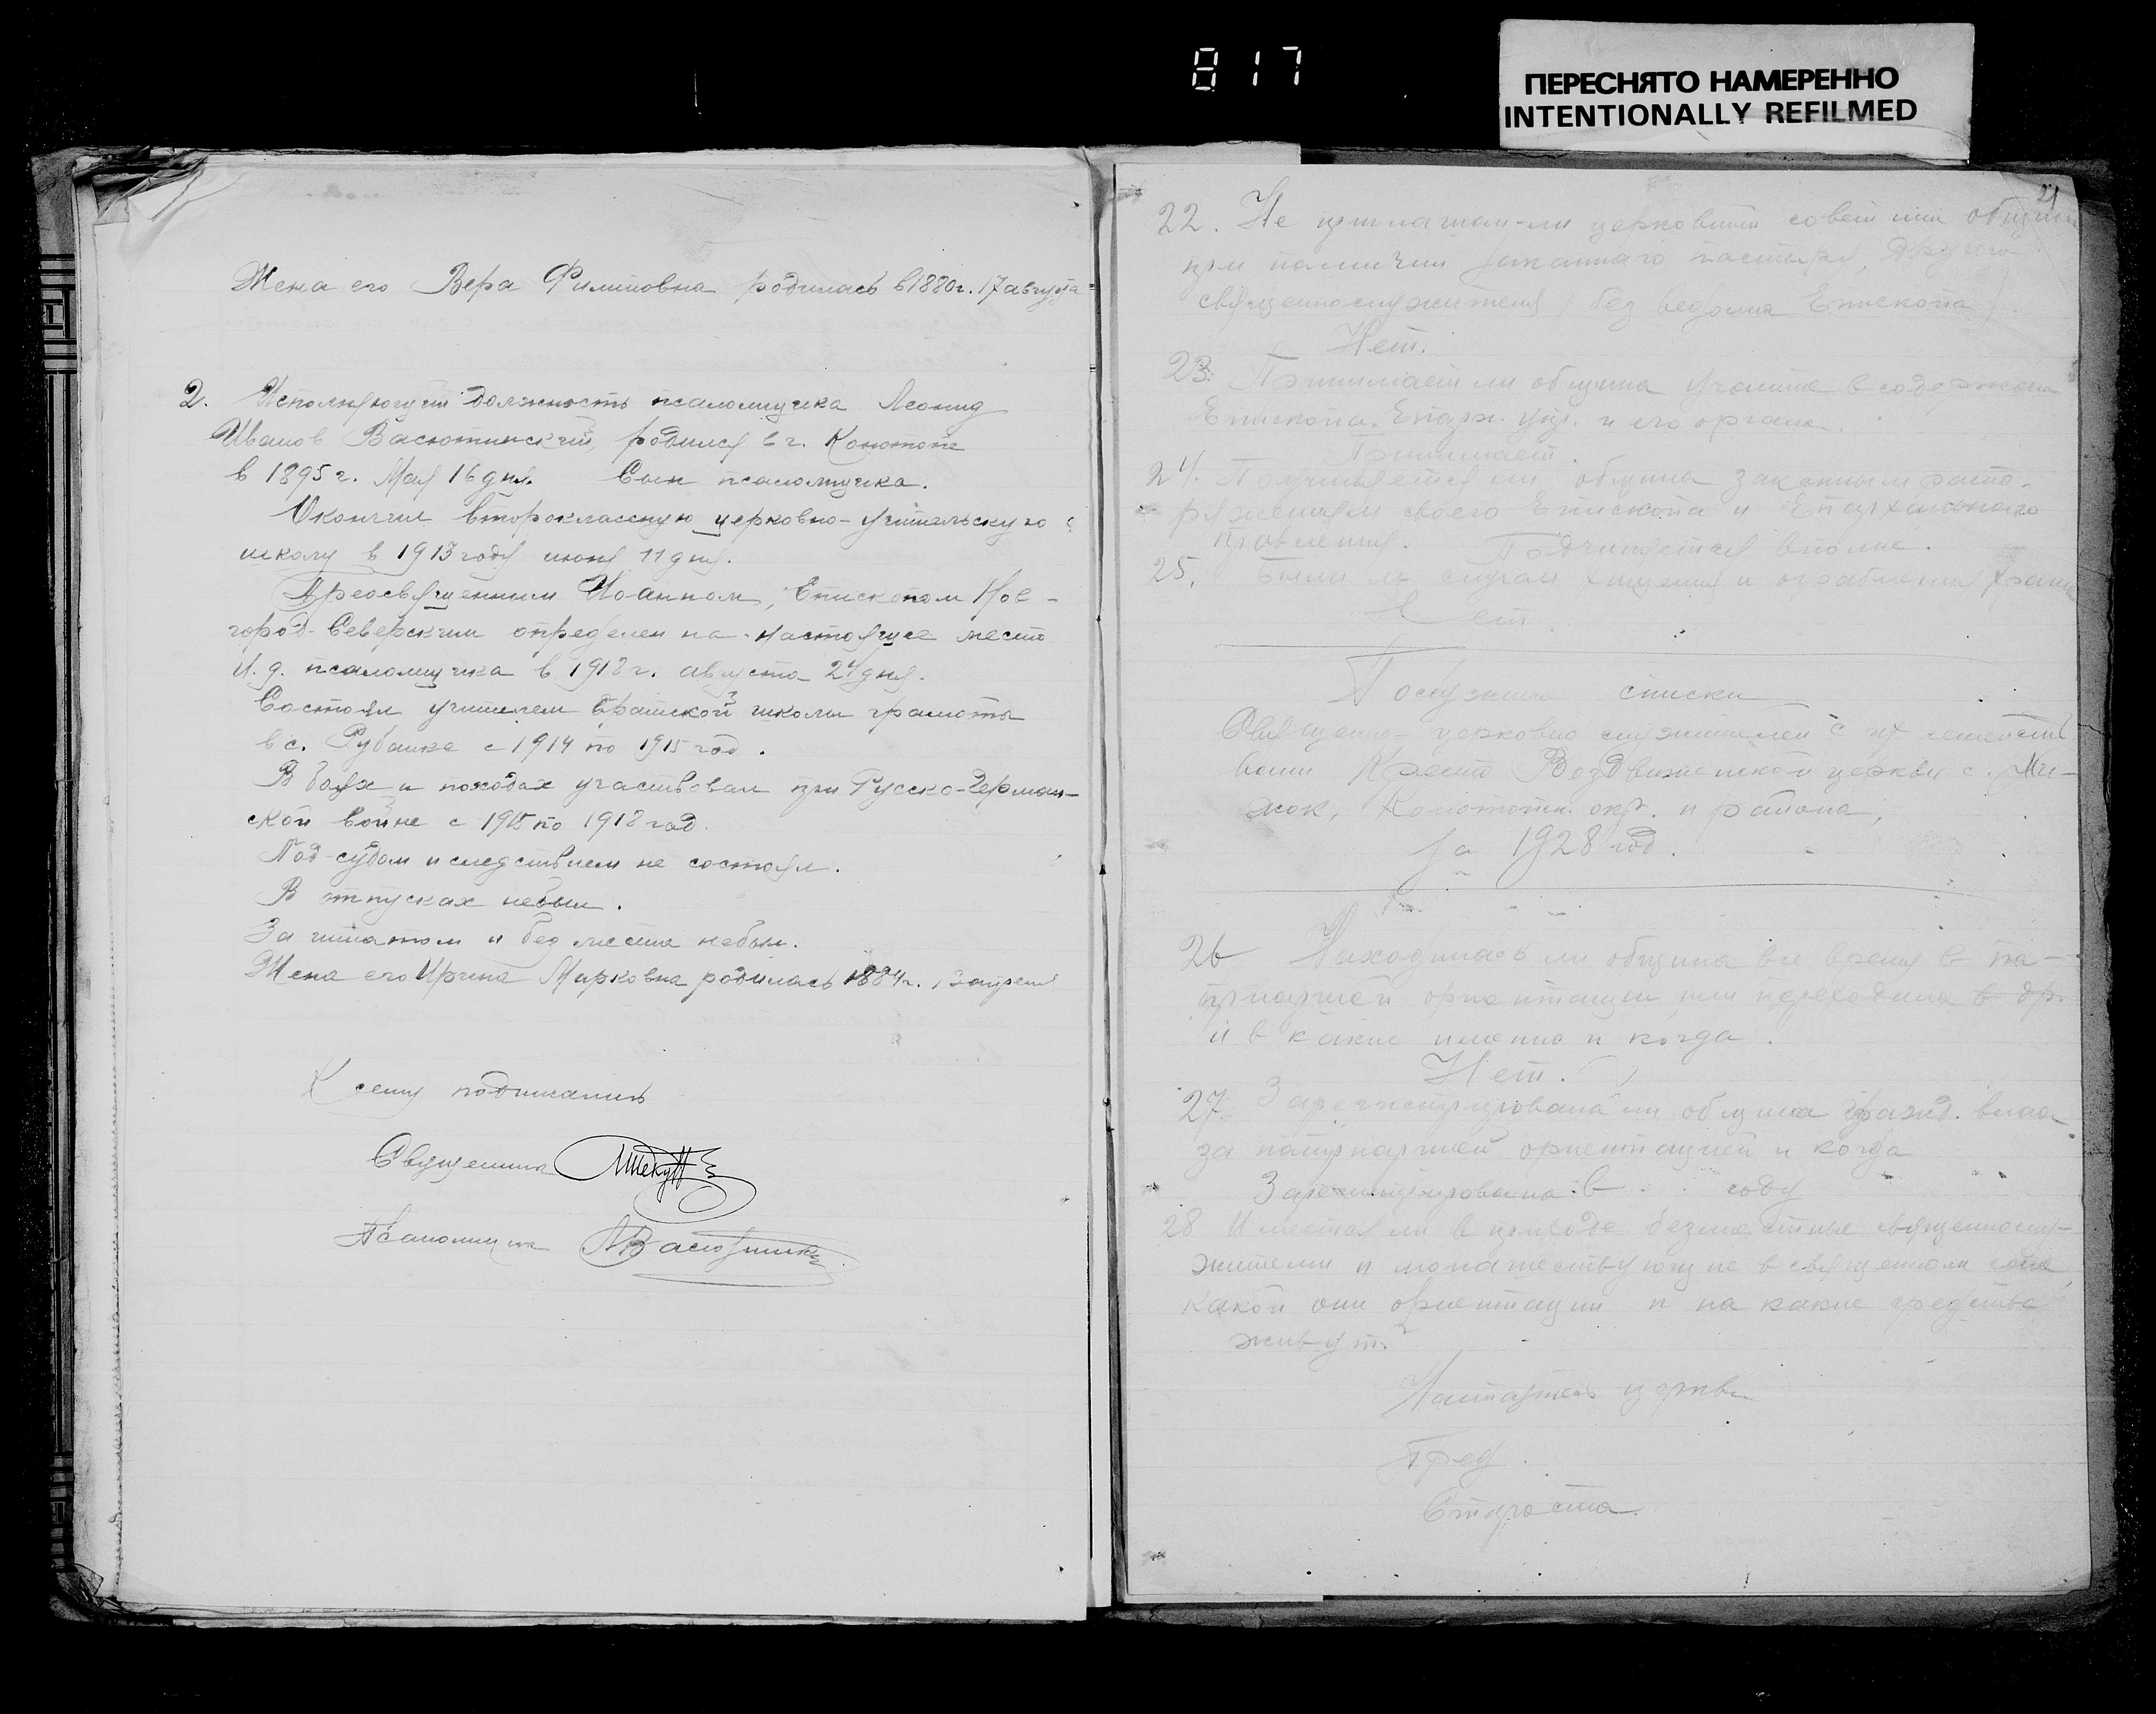 817
ПЕРЕСНЯТО НАМЕРЕННО
INTENTIONALLY REFILMED
Жена его Вера Филиповна родилась в 1880 г. 17 августа
2. Исполняющий должность псаломщика Леонид
Иванов Васютинский, родился в г. Конотопе
в 1895 г. Мая 16 дня. Сын псаломщика.
Окончил второклассную церковно-учительскую
школу в 1913 году июня 11 дня.
Преосвященным Иоанном, Епископом Нов-
город-Северским определен на настоящее место
И. д. псаломщика в 1918 г. августа 24 дня.
Состоял учителем братской школы грамоты
в с. Рубанке с 1914 по 1915 год.
В боях и походах участвовал при Русско-Герман-
ской войне с 1915 по 1918 год.
Под судом и следствием не состоял.
В отпусках небыл.
За штатом и без места небыл.
Жена его Ирина Марковна родилась 1884 г., 13 апреля
К сему подписались
Священник
Псаломщик Л Васютинск
21
22. Не приглашал-ли церковный совет или община
при наличии законнаго пастыря, другого
священнослужителя (без ведома Епископа)
Нет.
23. Принимает ли община участие в содержан
Епископа, Епарх. упр. и его органа.
Принимает.
24. Подчиняется ли община законным распо-
ряжениям своего Епископа и Епархиального
правления. Подчиняется вполне.
25. Были ли случаи хищения и ограбления храма
Нет.
Послужные списки
Священно-церковно служителей с их семейст
вами Кресто Воздвиженской церкви с.
Конотопск. окр. и района,
за 1928 год.
26 Находилась ли община все время в па-
триаршей ориентации или переходила в др.
и в какие именно и когда.
Нет.
27. Зарегистрирована ли община гражд. влас
за патриаршей ориентацией и когда
Зарегистрирована в году
28 Имеются ли в приходе безместные священнослу-
жители и монашествующие в священном сане,
какой они ориентации и на какие средства
живут?
Настоятель церкви
Пред.
Староста.